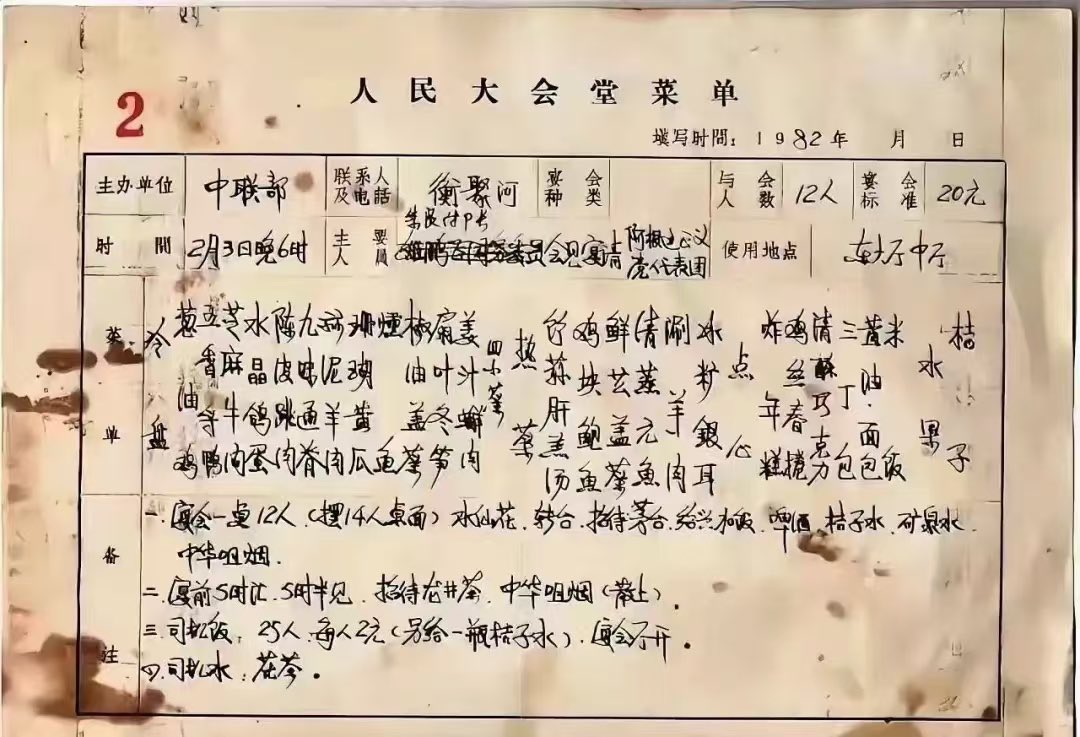 人民大会堂菜单
2
填写时間：1982年 月 日
主办单位 中联部 联系人及电話 衡聚河 宴会种类 与会人数 12人 宴会标准 20元
时間 2月3日晚6时 主要人員 会见宴请 代表团 使用地点 东大厅中厅
菜单
冷盘
葱油鸡
五香鸭
芝麻牛肉
水晶鸽蛋
陈皮肉
九味通脊
羊肉
珊瑚黄瓜
燻鱼
椒油盖菜
扇叶冬笋
姜汁肉
四小菜
热菜
竹荪肝羔汤
鸡块鲍鱼
鲜盖菜
清蒸元鱼
涮羊肉
冰籽銀耳
点心
炸年糕
鸡丝春捲
清酥巧克力
三丁包
黄油·面包
米饭
水果
桔子
备注
一.宴会一桌12人（摆14人桌面）水仙花、转台、招待茅台、绍兴、啤酒、桔子水、矿泉水、
中华咀烟.
二.宴前5时汇、5时半见、招待龙井茶、中华咀烟（带上）.
三.司机饭：25人、每人2元（另给一瓶桔子水）、宴会厅开.
四.司机水：花茶.